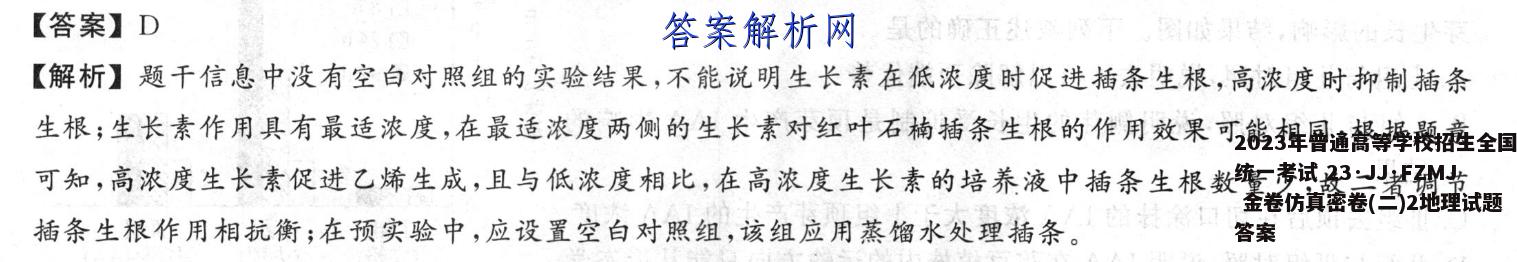 【答案】D
答案解析网
【解析】题干信息中没有空白对照组的实验结果,不能说明生长素在低浓度时促进插条生根,高浓度时抑制插条
生根;生长素作用具有最适浓度,在最适浓度两侧的生长素对红叶石楠插条生根的作用效果可能相同,根据题意
可知,高浓度生长素促进乙烯生成,且与低浓度相比,在高浓度生长素的培养液中插条生根数量少,故二者调节
插条生根作用相抗衡;在预实验中,应设置空白对照组,该组应用蒸馏水处理插条。
2023年普通高等学校招生全国
统一考试 23·JJ·FZMJ
金卷仿真密卷(二)2地理试题
答案